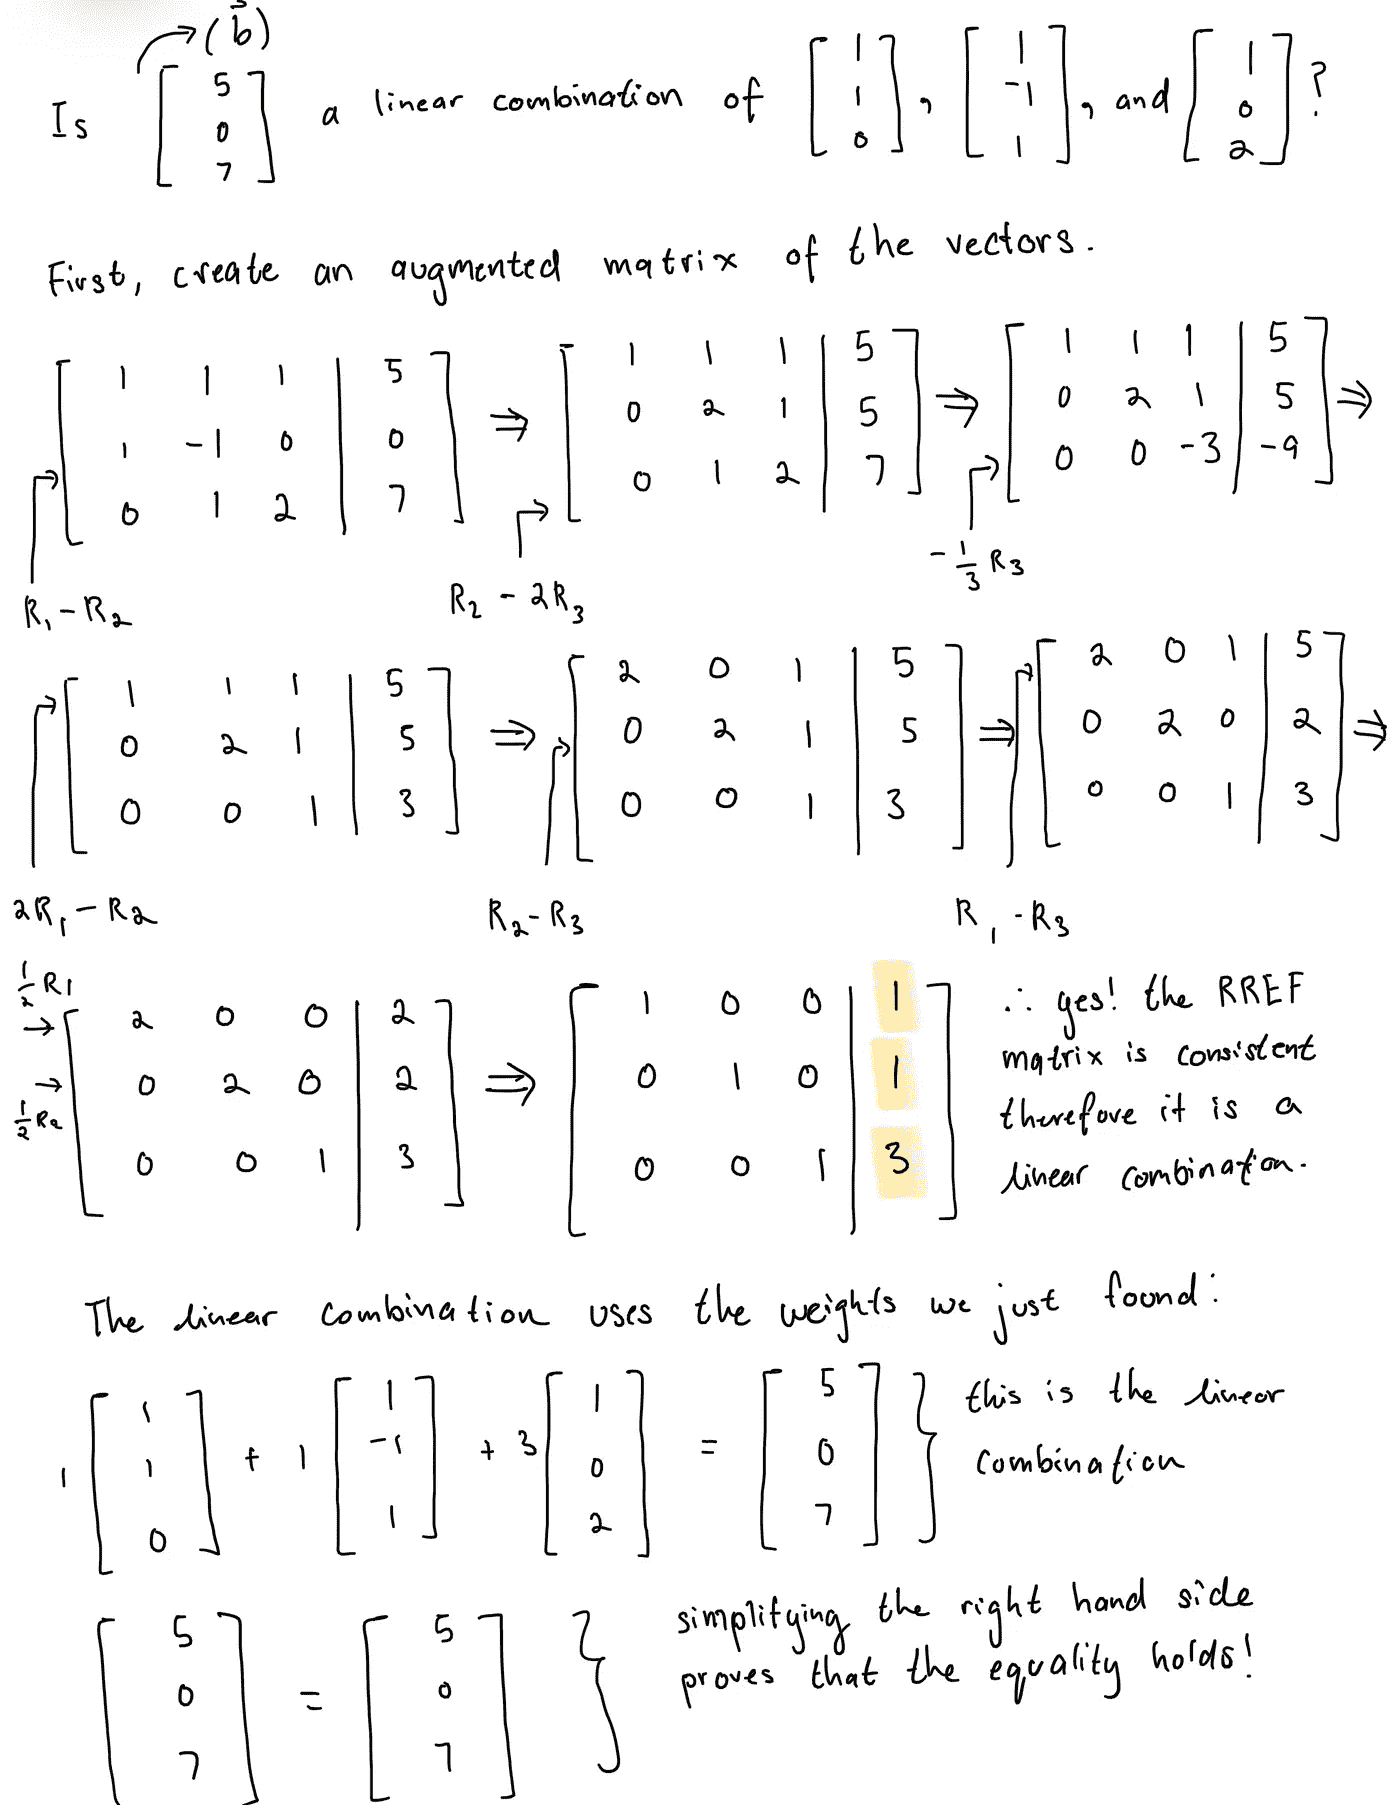 →(b⃗)
Is [5 0 7] a linear combination of [1 1 0], [1 -1 1], and [1 0 2]?
First, create an augmented matrix of the vectors.
[1 1 1 | 5] ⇒ [1 1 1 | 5] ⇒ [1 1 1 | 5] ⇒
[1 -1 0 | 0] [0 2 1 | 5] [0 2 1 | 5]
[0 1 2 | 7] [0 1 2 | 7] [0 0 -3 | -9]
R₁ - R₂ R₂ - 2R₃ -1/3 R₃
[1 1 1 | 5] ⇒ [2 0 1 | 5] ⇒ [2 0 1 | 5] ⇒
[0 2 1 | 5] [0 2 1 | 5] [0 2 0 | 2]
[0 0 1 | 3] [0 0 1 | 3] [0 0 1 | 3]
2R₁ - R₂ R₂ - R₃ R₁ - R₃
1/2 R1 → [2 0 0 | 2] ⇒ [1 0 0 | 1]
1/2 R₂ → [0 2 0 | 2] [0 1 0 | 1]
[0 0 1 | 3] [0 0 1 | 3]
∴ yes! the RREF
matrix is consistent
therefore it is a
linear combination.
The linear combination uses the weights we just found:
1 [1 1 0] + 1 [1 -1 1] + 3 [1 0 2] = [5 0 7] } this is the linear
combination
[5 0 7] = [5 0 7] } simplifying the right hand side
proves that the equality holds!